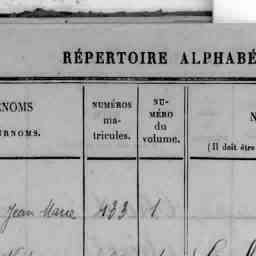 RÉPERTOIRE ALPHABÉ
ÉNOMS
URNOMS.
NUMÉROS
ma-
tricules.
NU-
MÉRO
du
volume.
N
(Il doit être
Jean Marie 433 1